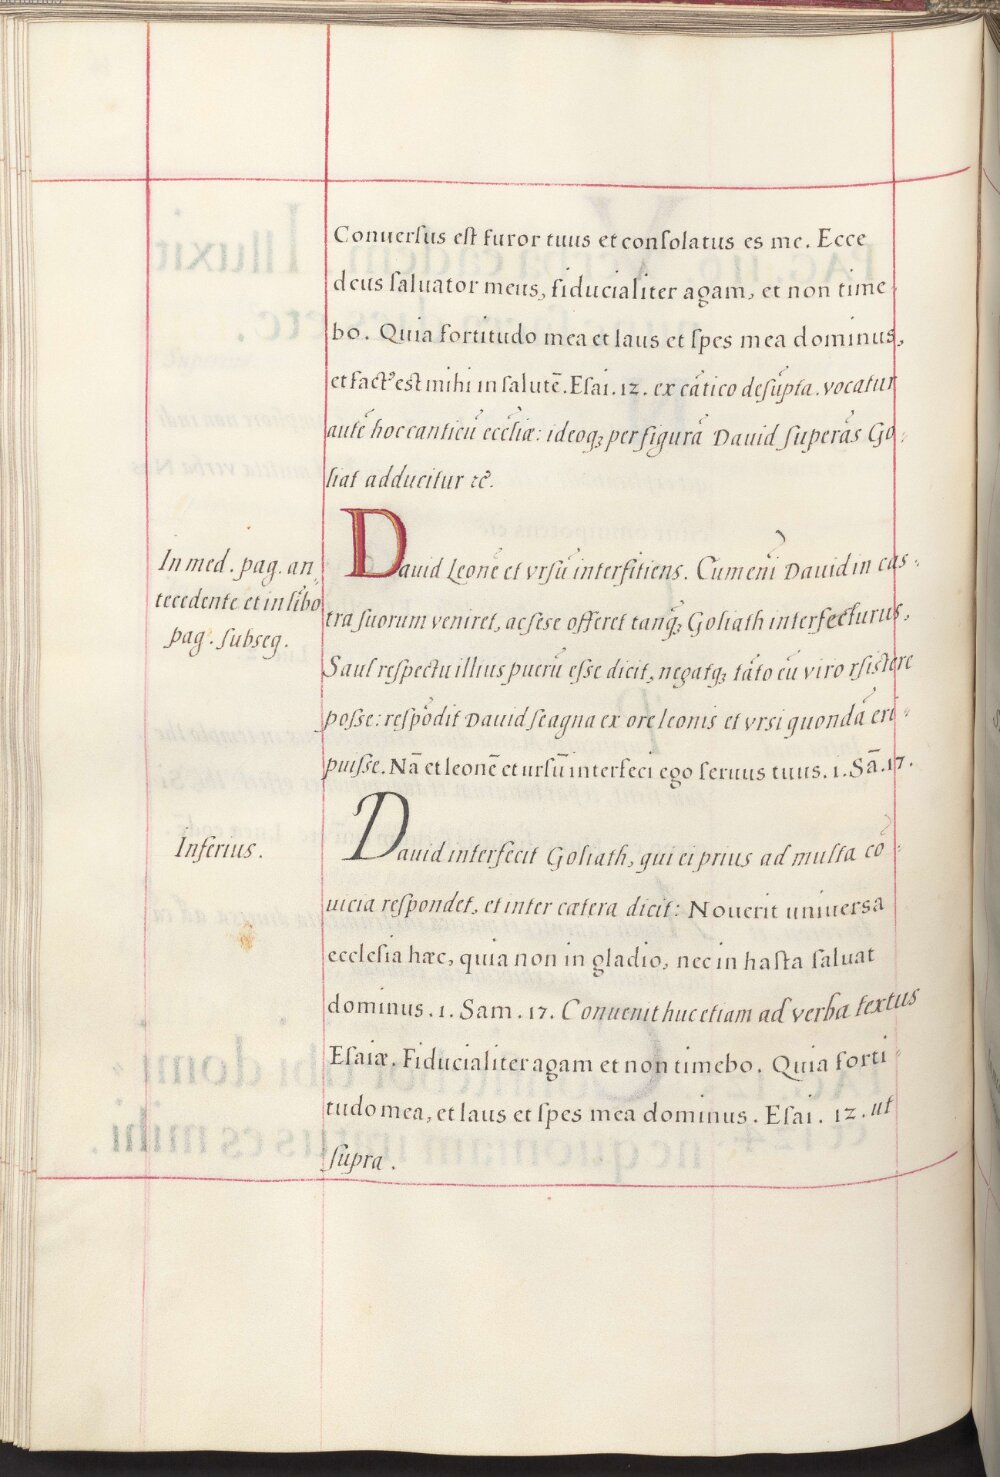 Conuerſus eſt furor tuus et conſolatus es me. Ecce
deus ſaluator meus, fiducialiter agam, et non time-
bo. Quia fortitudo mea et laus et ſpes mea dominus,
et fact᾽ est mihi in salutē. Eſai. 12. ex cātico deſūpta. vocatur
autē hoc canticū eccl̄iæ: ideoq; per figurā Dauid ſuperās Go-
liat adducitur ⁊c̄.
In med. pag. an-
tecedente et in lībo
pag. ſubseq.
Dauid Leonē et vrſū interfitiens. Cum enī Dauid in cas-
tra ſuorum veniret, ac ſese offeret tanq̄; Goliath interfecturus,
Saul reſpectu illius puerū eſse dicit, negatq; tāto eū viro rſistere
poſse: reſpōdit Dauid ſe agna ex ore leonis et vrsi quondā eri-
puiſse. Nā et leonē et urſū interfeci ego ſeruus tuus. 1. Sā. 17.
Inferius.
Dauid interfecit Goliath, qui ei prius ad multa cō-
uicia reſpondet, et inter cætera dicit: Nouerit uniuersa
eccleſia hæc, quia non in gladio, nec in haſta ſaluat
dominus. 1. Sam. 17. Conuenit huc etiam ad verba textus
Eſaiæ. Fiducialiter agam et non timebo. Quia forti-
tudo mea, et laus et ſpes mea dominus. Eſai. 12. ut
ſupra.